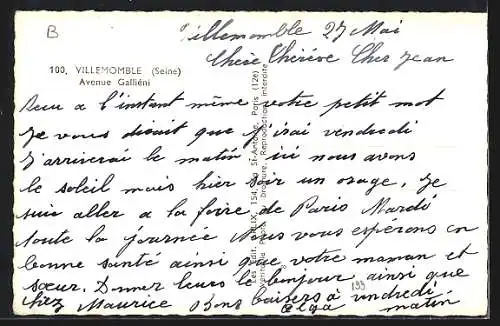 B
Villemomble 27 Mai
Chère Thérèse Cher Jean
100, VILLEMOMBLE (Seine)
Avenue Galliéni
Reçu a l'instant même votre petit mot
Je vous disait que j'irai vendredi
J'arriverai le matin ici nous avons
le soleil mais hier soir un orage, Je
suis aller a la foire de Paris Mardi
toute la journée Nous vous espérons en
bonne santé ainsi que votre maman et
sœur. Donner leurs le bonjour ainsi que
chez Maurice Bons baisers à vendredi
Olga matin
193
St-Antoine, Paris (12e)
Reproduction interdite